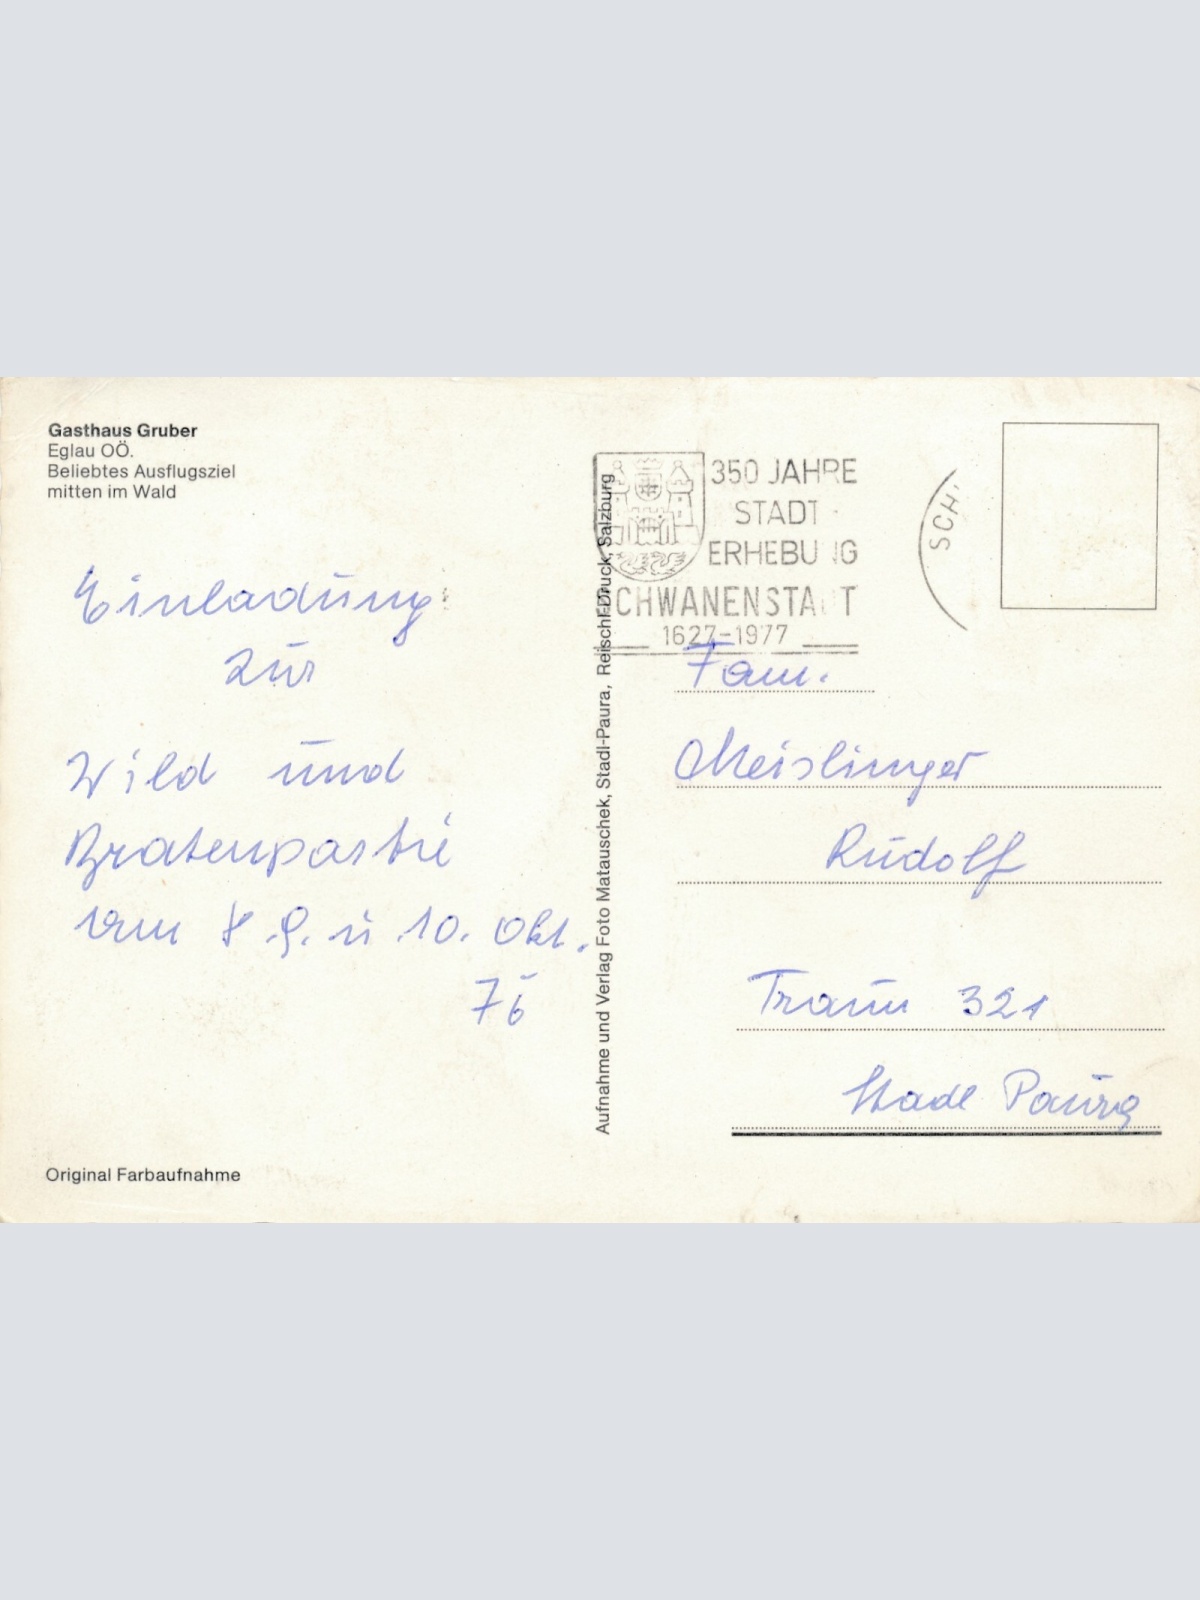 Gasthaus Gruber
Eglau OÖ.
Beliebtes Ausflugsziel
mitten im Wald
Einladung
zur
Wild und
Bratenpartie
vom 8. 9. u 10. Okt.
76
Original Farbaufnahme
Aufnahme und Verlag Foto Matauschek, Stadl-Paura, Reischl-Druck, Salzburg
350 JAHRE
STADT
ERHEBUNG
SCHWANENSTADT
1627-1977
SCH
Fam.
Meislinger
Rudolf
Traun 321
Stadl Paura